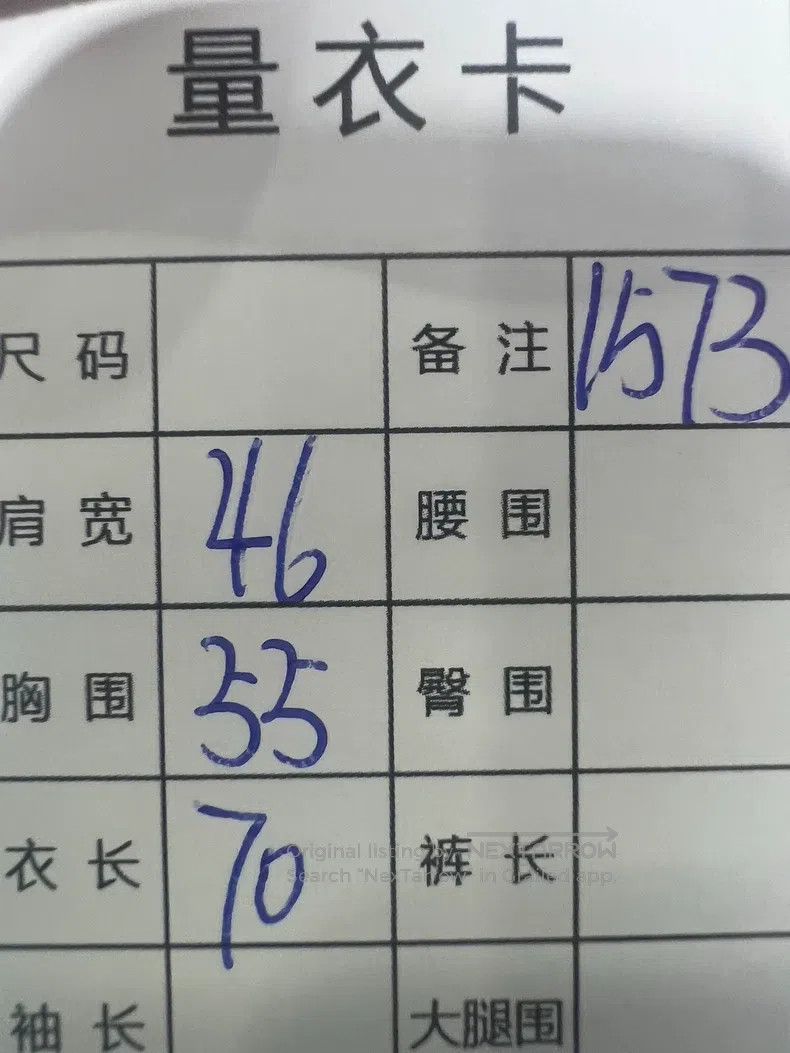 量衣卡
尺码 备注 1573
肩宽 46 腰围
胸围 55 臀围
衣长 70 裤长
Original listing by NEXTARROW
Search "NexTarrow" in app.
袖长 大腿围